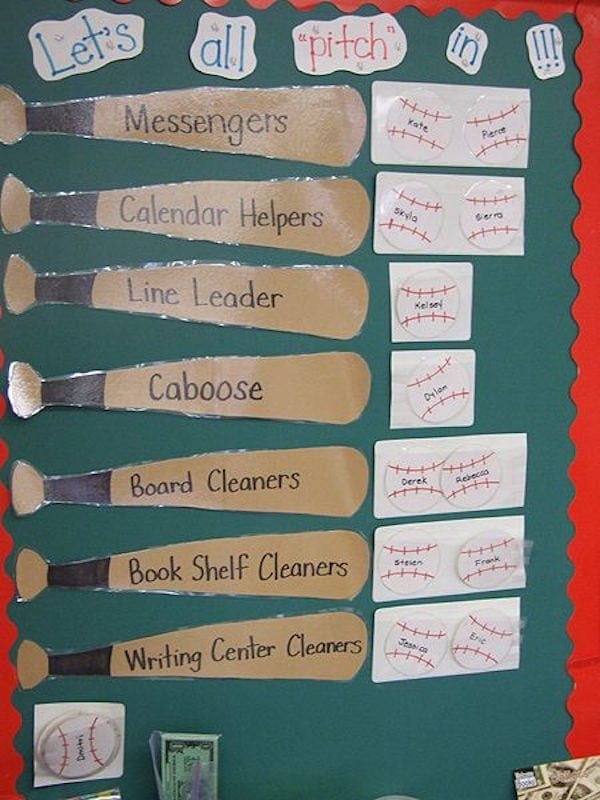 Let's all "pitch" in !!!
Messengers Kate Pierce
Calendar Helpers Skyla Sierra
Line Leader Kelsey
Caboose Dylan
Board Cleaners Derek Rebecca
Book Shelf Cleaners Steven Frank
Writing Center Cleaners Jessica Eric
Dmitri